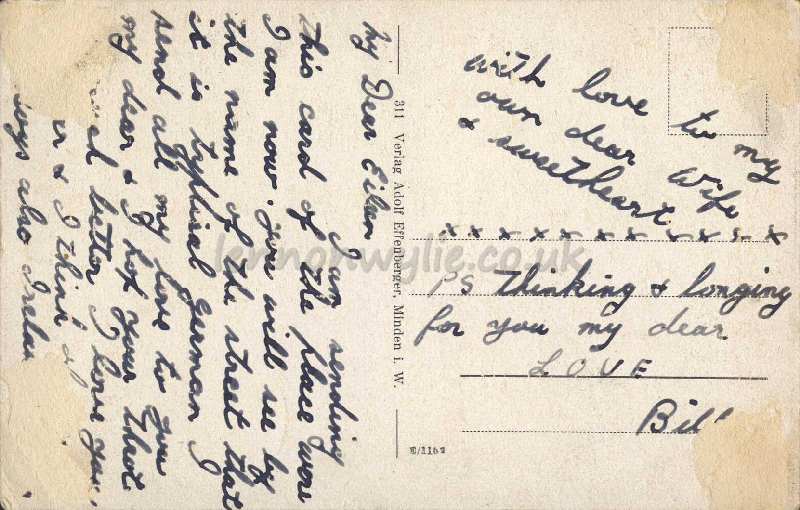 My Dear Eileen
I am sending
this card of the place were
I am now. you will see by
the name of the street that
it is typical German I
send all my love to you
my dear & I hop your throt
better I love you.
er & I think
ways also
with love to my
own dear Wife
& sweetheart
x x x x x x x x x x x
PS Thinking & longing
for you my dear
LOVE
Bill
311 Verlag Adolf Effenberger, Minden i. W.
E/1152
lennonwylie.co.uk